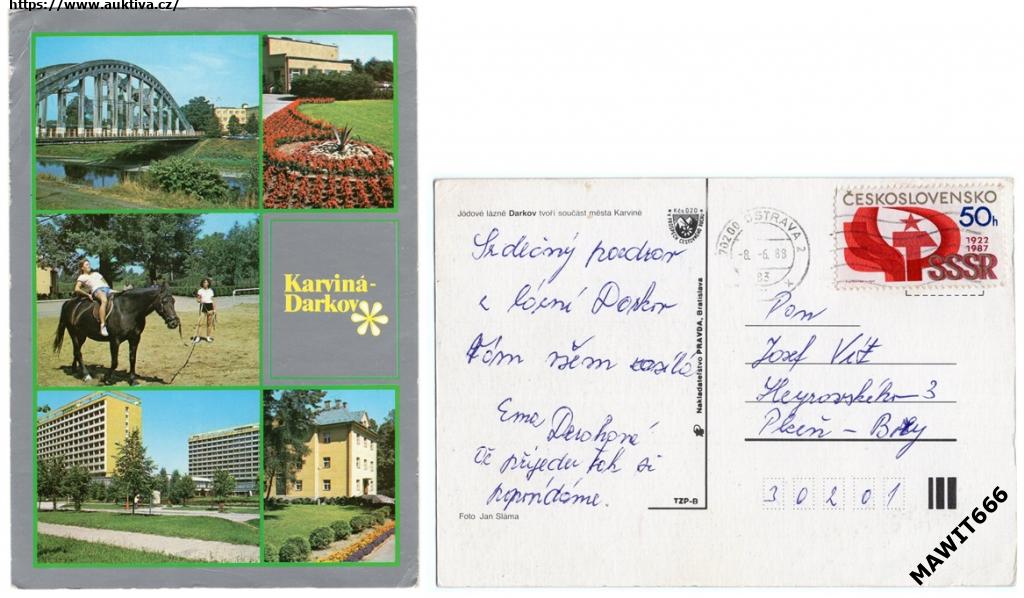 https://www.auktiva.cz/
Karviná-
Darkov
Jódové lázně Darkov tvoří součást města Karviné
Kčs 0,20
Srdečný pozdrav
z lázní Darkov
Vám všem zasílá
Ema
Až přijedu tak si
popovídáme.
Foto Jan Sláma
Nakladatelství PRAVDA, Bratislava
TZP-B
702 00 OSTRAVA 2
-8.-6.88
ČESKOSLOVENSKO
50h
1922
1987
SSSR
Pan
Josef Vít
Heyrovského 3
Plzeň - Bory
30201
MAWIT666